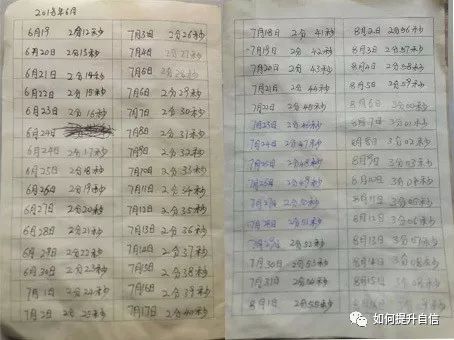 2018年6月
6月19 2分12秒
6月20日 2分13秒
6月21日 2分14秒
6月22日 2分15秒
6月23日 2分16秒
6月24日
6月24日 2分17秒
6月25日 2分18秒
6月26日 2分19秒
6月27日 2分20秒
6月28日 2分21秒
6月29日 2分22秒
6月30日 2分23秒
7月1日 2分24秒
7月2日 2分25秒
7月3日 2分26秒
7月4日 2分27秒
7月5日 2分28秒
7月6日 2分29秒
7月7日 2分30秒
7月8日 2分31秒
7月9日 2分32秒
7月10日 2分33秒
7月11日 2分34秒
7月12日 2分35秒
7月13日 2分36秒
7月14日 2分37秒
7月15日 2分38秒
7月16日 2分39秒
7月17日 2分40秒
7月18日 2分41秒
7月19日 2分42秒
7月20日 2分43秒
7月21日 2分44秒
7月22日 2分45秒
7月23日 2分46秒
7月24日 2分47秒
7月25日 2分48秒
7月26日 2分49秒
7月27日 2分50秒
7月28日 2分51秒
7月29日 2分52秒
7月30日 2分53秒
7月31日 2分54秒
8月1日 2分55秒
8月2日 2分56秒
8月3日 2分57秒
8月4日 2分58秒
8月5日 2分59秒
8月6日 3分00秒
8月7日 3分01秒
8月8日 3分02秒
8月9日 3分03秒
8月10日 3分04秒
8月11日 3分05秒
8月12日 3分06秒
8月13日 3分07秒
8月14日 3分08秒
8月15日
如何提升自信